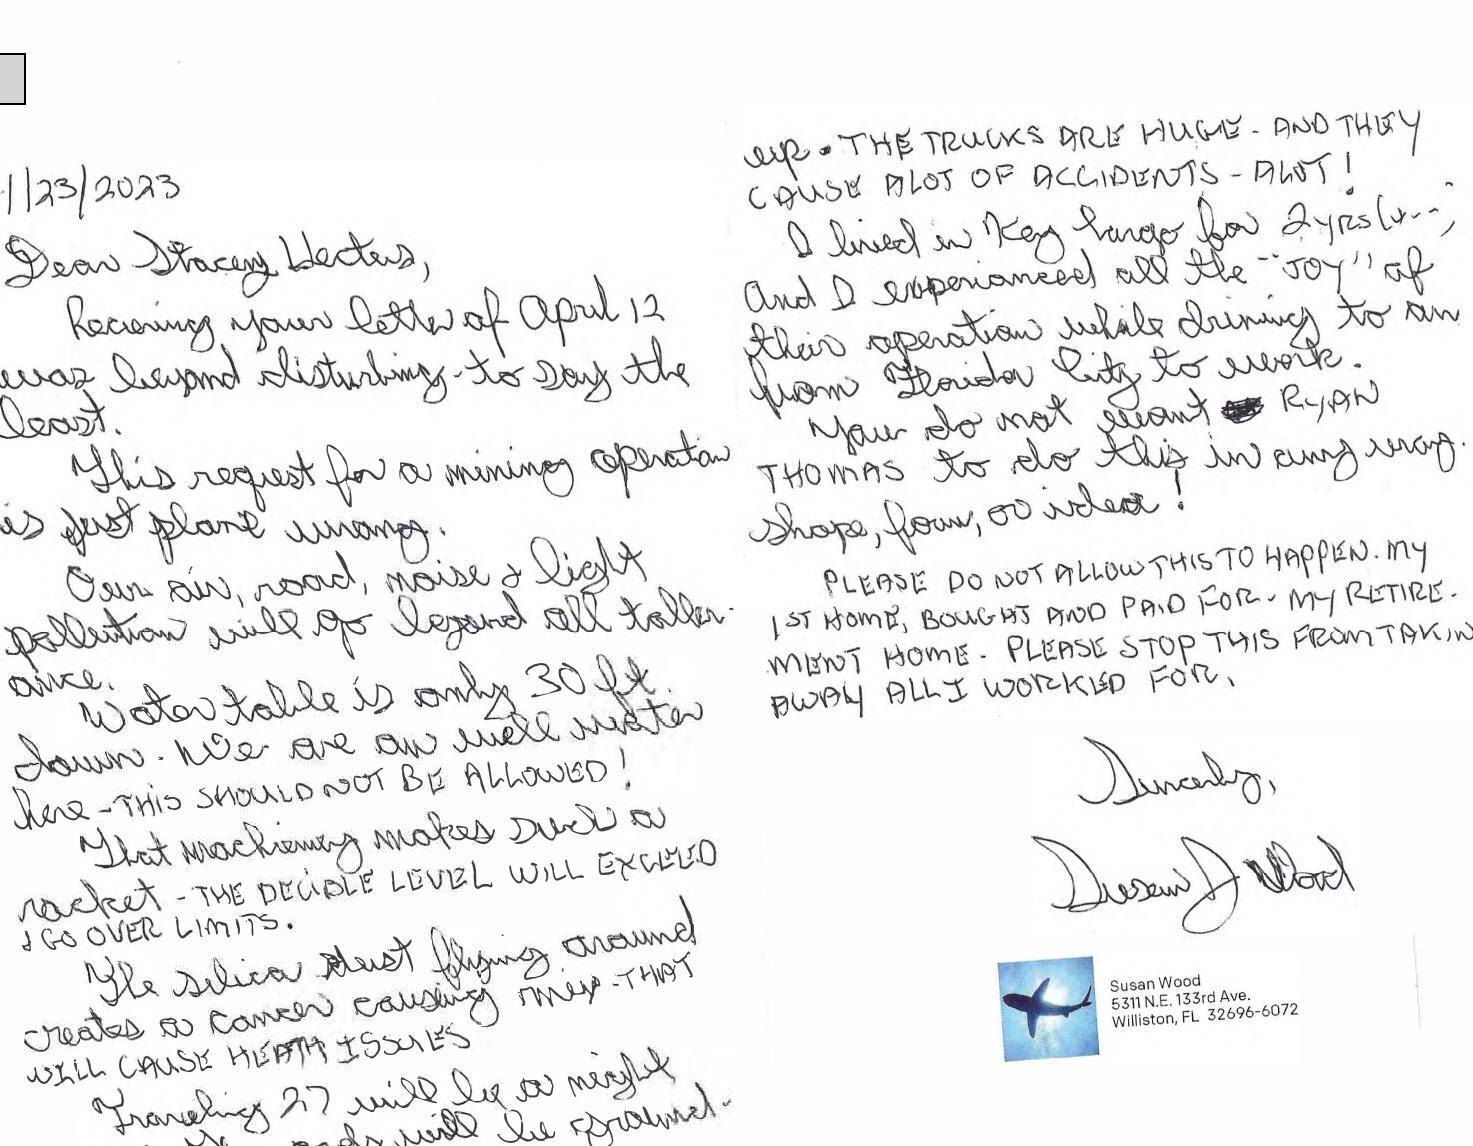 1/23/2023
Dear Stacey Hectus,
Recieving your letter of April 12
was beyond disturbing - to say the
least.
This request for a mining operation
is just plane wrong.
Our air, road, noise & light
pollution will go beyond all toller-
ance.
Water table is only 30 ft.
down. We are on well water
here - THIS SHOULD NOT BE ALLOWED!
That machienery makes such a
racket - THE DECIBLE LEVEL WILL EXCEED
& GO OVER LIMITS.
The silica dust flying around
creates a cancer causing mix - THAT
WILL CAUSE HEATH ISSUES
Traveling 27 will be a night
will be ground-
up. THE TRUCKS ARE HUGE - AND THEY
CAUSE ALOT OF ACCIDENTS - ALOT!
I lived in Key Largo for 2 yrs
and I experianced all the "JOY" of
their operation while driving to an
from Florida City to work.
You do not want RYAN
THOMAS to do this in any way,
shape, form, or idea!
PLEASE DO NOT ALLOW THIS TO HAPPEN. MY
1ST HOME, BOUGHT AND PAID FOR - MY RETIRE-
MENT HOME. PLEASE STOP THIS FROM TAKIN
AWAY ALL I WORKED FOR.
Sincerly,
Susan J Wood
Susan Wood
5311 N.E. 133rd Ave.
Williston, FL 32696-6072